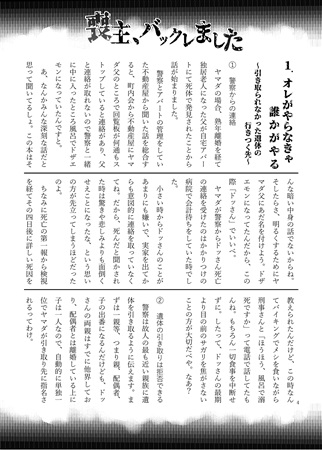 喪主、バックレました
1、オレがやらなきゃ
誰がやる
〜引き取られなかった遺体の
行きつく先〜
① 警察からの連絡
ヤマダの場合、熟年離婚を経て
独居老人になった父が自宅アパー
トにて死体で発見されたことから
話が始まりました。
警察とアパートの管理をしてい
た不動産屋から聞いた話を総合す
ると、町内会から不動産屋にヤマ
ダ父のところで回覧板が何通もス
トップしていると連絡があり、父
と連絡が取れないので警察と一緒
に中に入ったところ風呂でドザエ
モンになっていたんですと。
あ、なんかみんな深刻な話だと
思って聞いてるでしょ。この本はそ
んな暗い中身の話でないからね。
そしたらさ、明るくするためにヤ
マダ父にあだ名を付けよう。ドザ
エモンになってたんだから、この
際「ドッさん」でいいべ。
ヤマダが警察からドッさん死亡
の連絡を受けたのはかかりつけの
病院で会計待ちをしていた時でし
た。
小さい時からドッさんのことが
あまりにも嫌いで、実家を出てか
らも意図的に連絡を取っていなく
てね。だから、死んだと聞かされ
た時は驚きや悲しみよりも面倒く
せえことになったな、という思い
の方が先立ってしまうほどだった
のよ。
ちなみに死亡の第一報から検視
を経てその四日後に詳しい死因を
教えられたんだけど、この時なん
てバイキングでメシを食いながら
刑事さんと「ほうほう、風呂で溺
死ですか」って電話で話してたも
んね。もちろん一切食事を中断せ
ずに。したって、ドッさんの最期
より目の前のサガリを焦がさない
ことの方が大切だべや。なあ？
② 遺体の引き取りは拒否できる
警察は故人の最も近い親族に遺
体を引き取るように伝えます。ま
ずは親等、つまり親、配偶者、
子の出番になるんだけども、ドッ
さんの両親はすでに他界してお
り、配偶者とは離婚している上に
子は一人なので、自動的に単独一
位でヤマダが引き取り先に指名さ
れるってわけ。